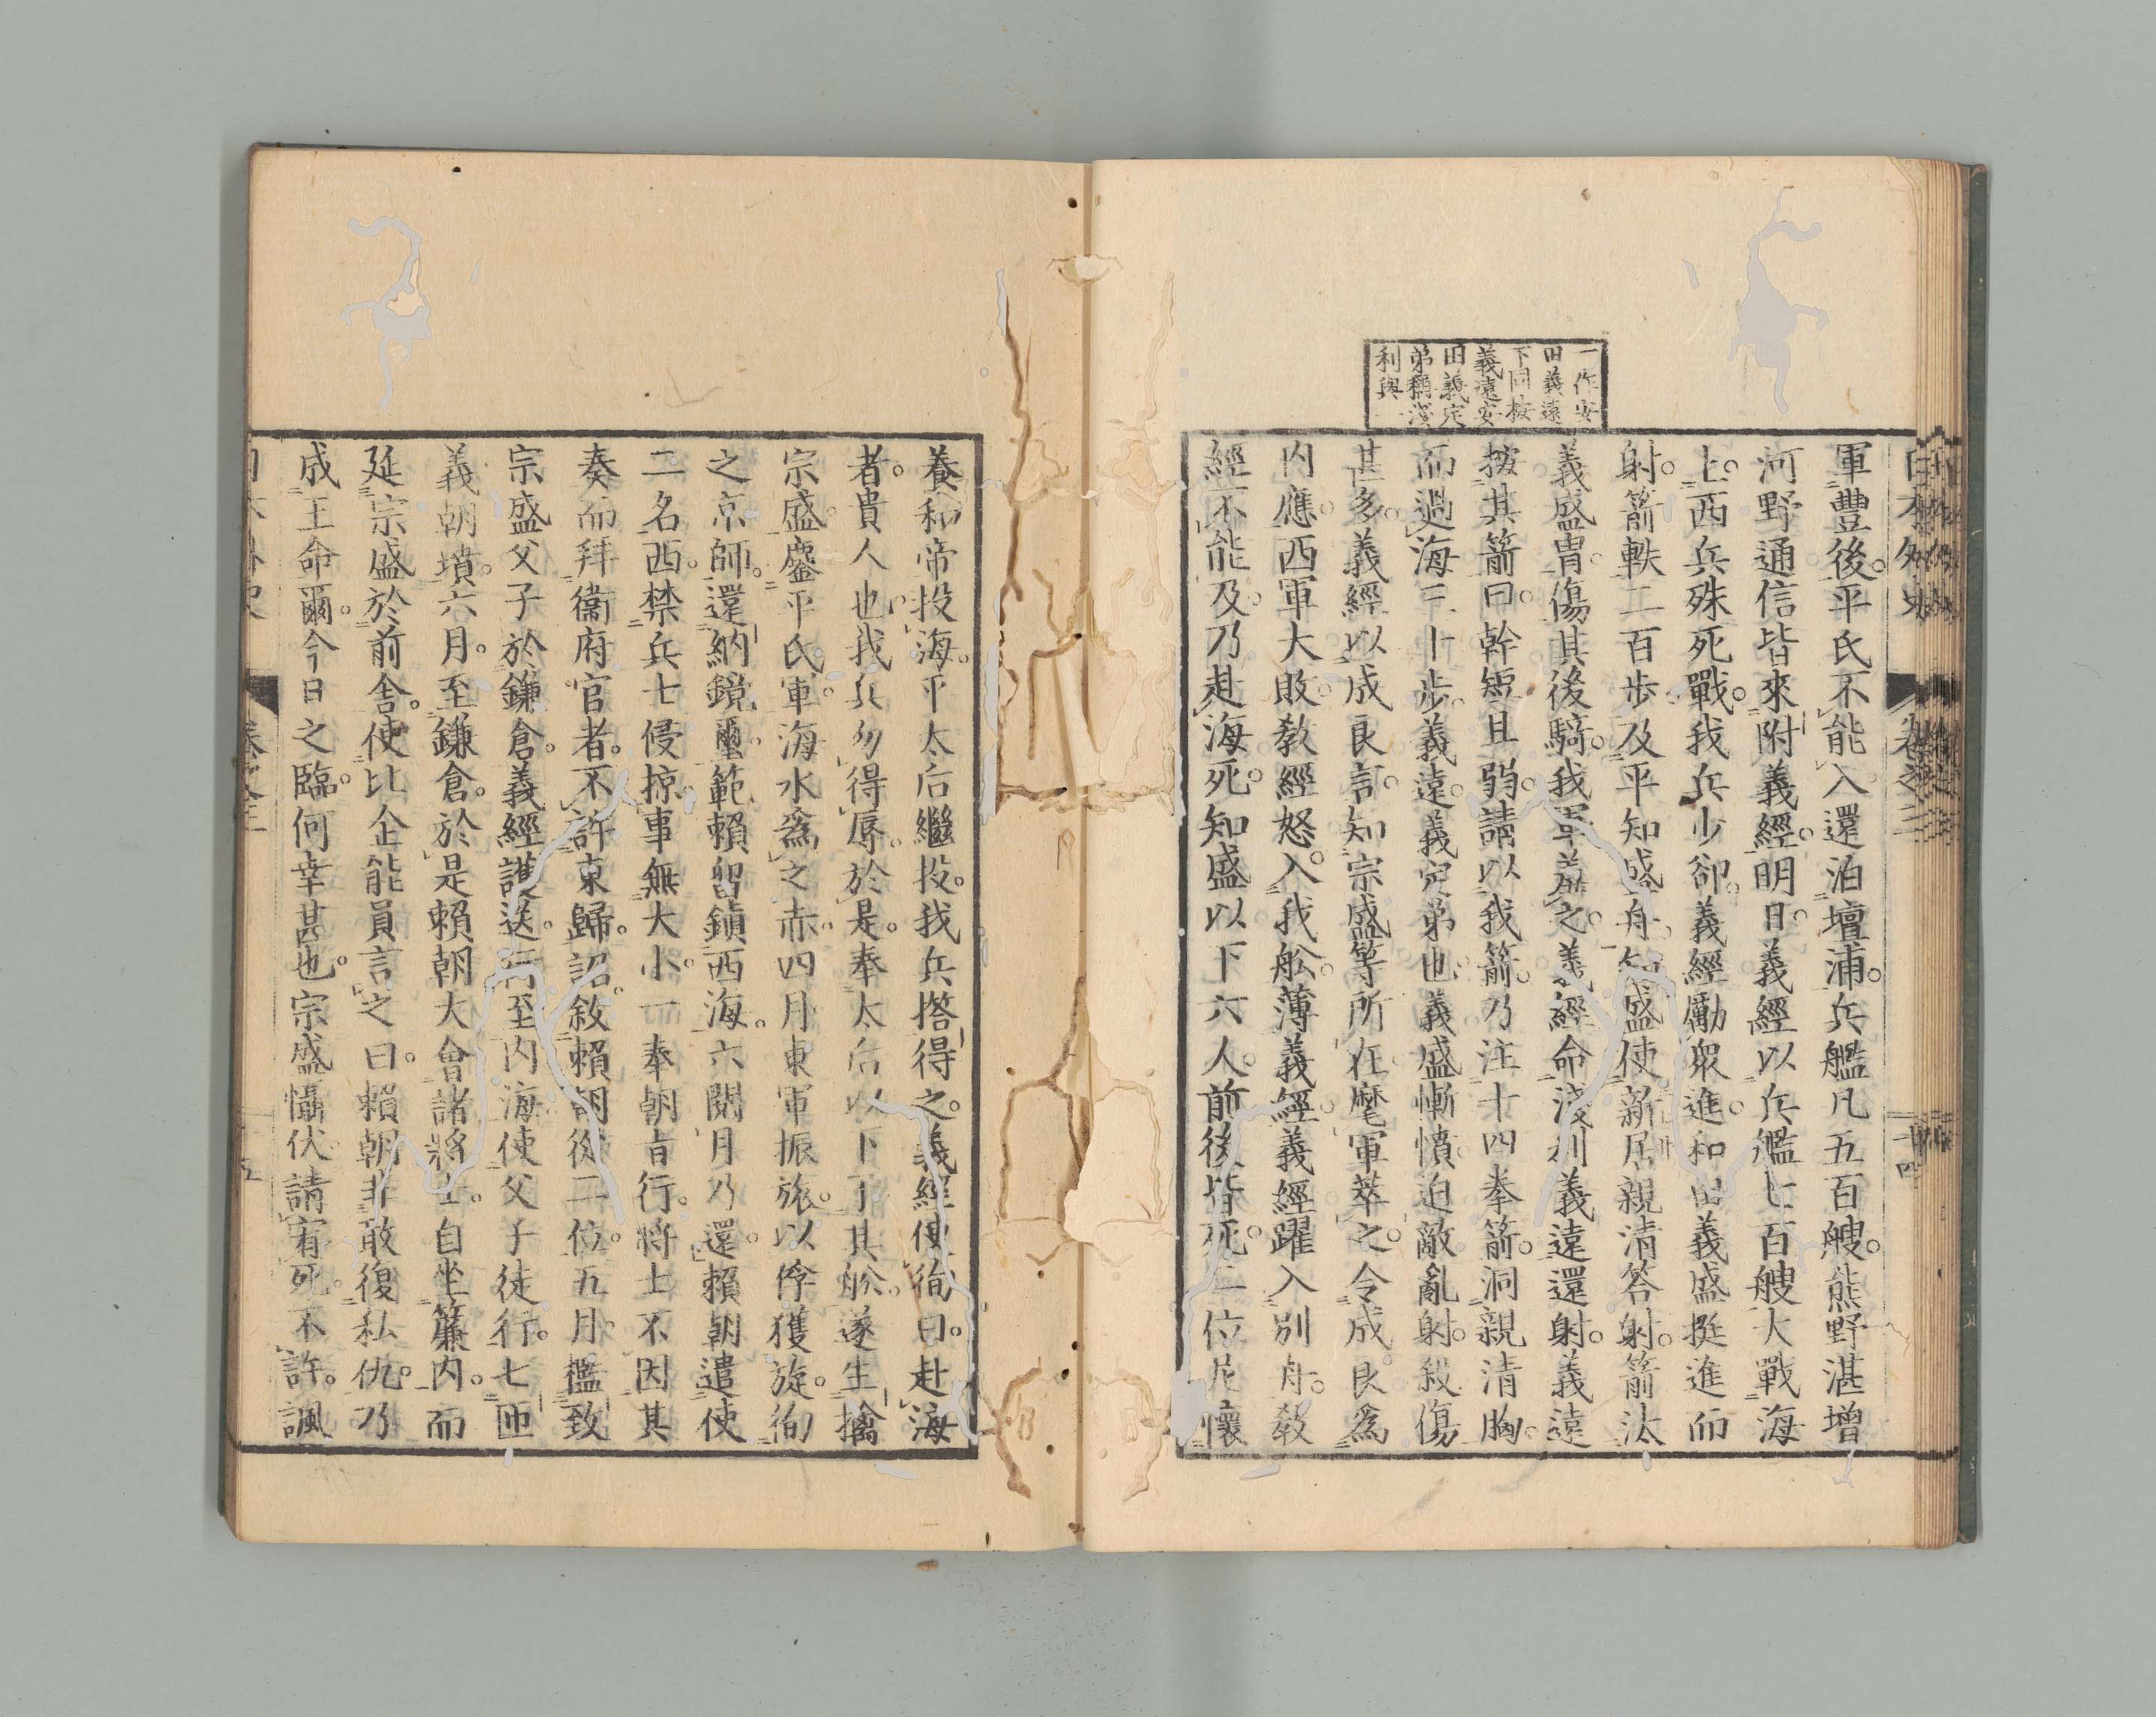 日本外史
卷之三
十四
一作安
田義遠
下同按
義遠安
田義定
弟稱淺
利與一
軍豐後。平氏不能入。還泊壇浦。兵艦凡五百艘。熊野湛增
河野通信皆來附義經。明日。義經以兵艦七百艘大戰海
上。西兵殊死戰。我兵少卻。義經勵眾進。和田義盛挺進而
射。箭軼二百步。及平知盛舟。知盛使新居親清答射。箭汰
義盛冑。傷其後騎。我軍羞之。義經命淺利義遠還射。義遠
按其箭曰。幹短且弱。請以我箭。乃注十四拳箭。洞親清胸。
而過海三十步。義遠。義定弟也。義盛慚憤。迫敵亂射。殺傷
甚多。義經以成良言。知宗盛等所在。麾軍萃之。令成良爲
內應。西軍大敗。教經怒。入我舩。薄義經。義經躍入別舟。教
經不能及。乃赴海死。知盛以下六人。前後皆死。二位尼懷
養和帝投海。平太后繼投。我兵撘得之。義經使徇曰。赴海
者。貴人也。我兵勿得辱。於是。奉太后以下了其舩。遂生擒
宗盛。鏖平氏軍。海水爲之赤。四月。東軍振旅。以俘獲旋。徇
之京師。還納鏡璽。範賴留鎮西海。六閱月乃還。賴朝遣使
二名西。禁兵士侵掠。事無大小。一奉朝旨行。將士不因其
奏而拜衞府官者。不許東歸。詔敘賴朝從二位。五月。檻致
宗盛父子於鎌倉。義經護送。行至內海。使父子徒行。七匝
義朝墳。六月。至鎌倉。於是賴朝大會諸將士。自坐簾內。而
延宗盛於前舍。使比企能員言之曰。賴朝非敢復私仇。乃
成王命爾。今日之臨。何幸甚也。宗盛懾伏請宥死。不許。諷